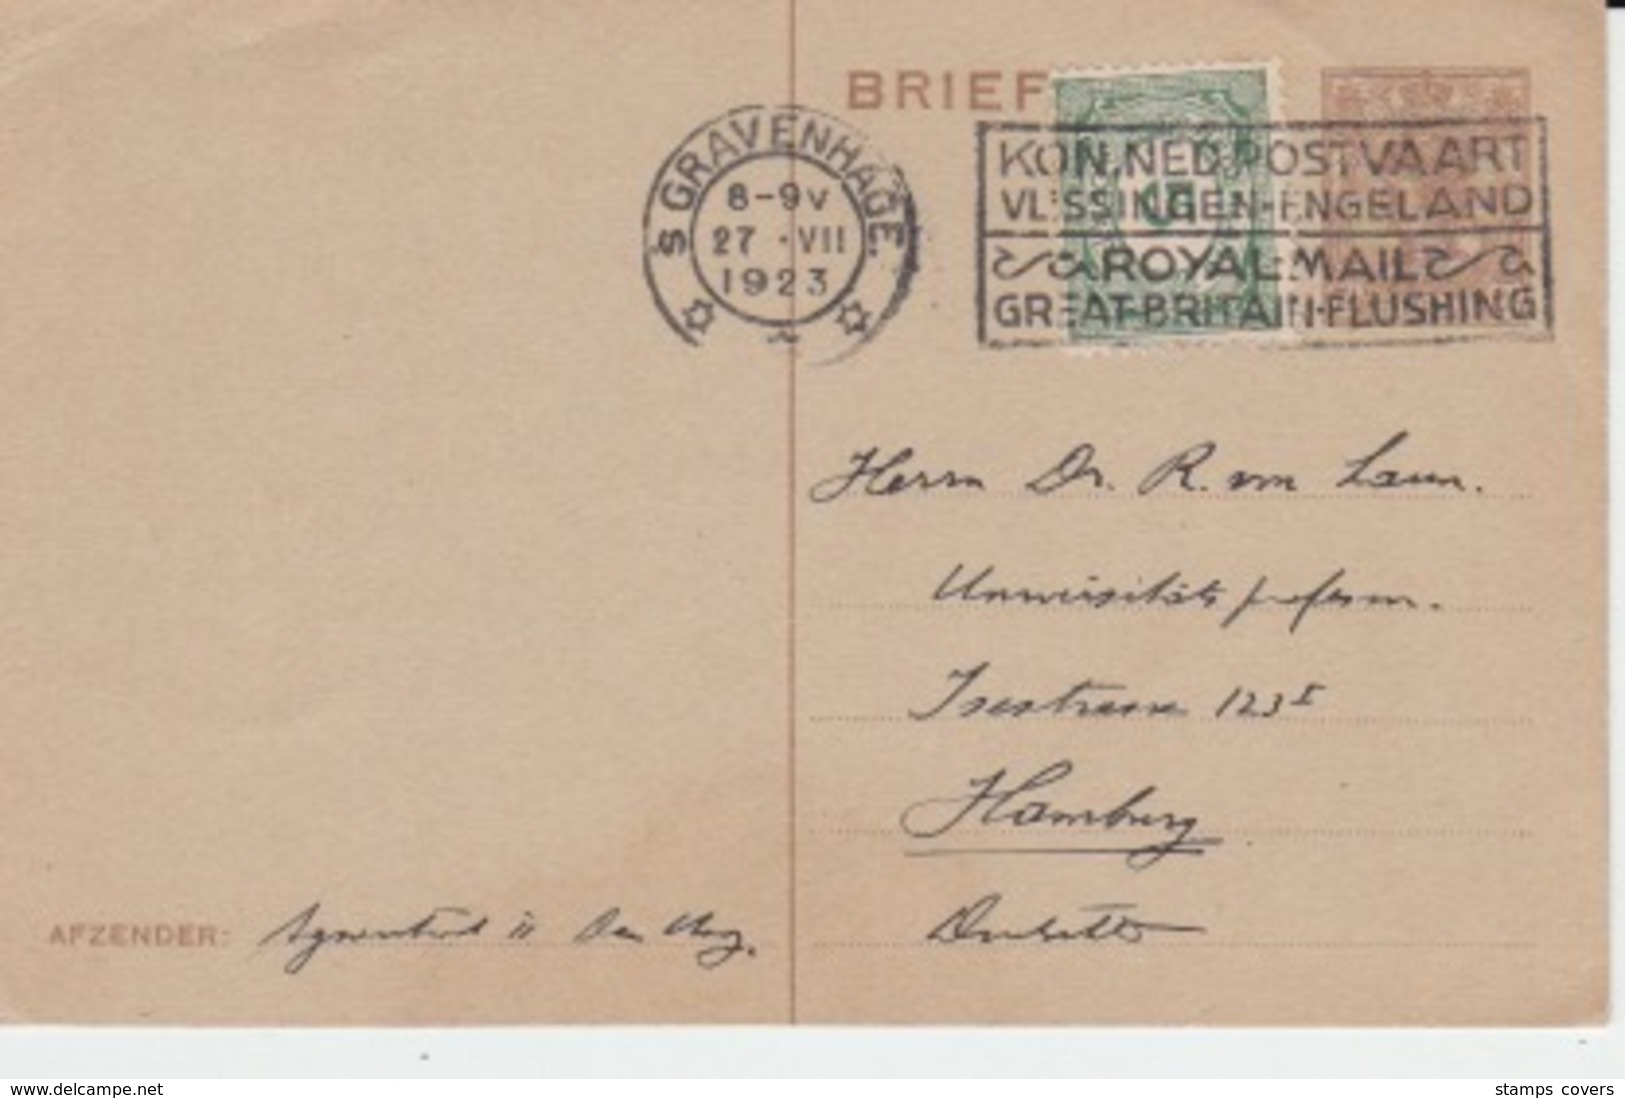 BRIEF
'S GRAVENHAGE.
8-9V
27 · VII
1923
KON. NED. POSTVAART
VLISSINGEN-ENGELAND
ROYAL-MAIL
GREAT-BRITAIN-FLUSHING
5
Herrn Dr. R. von Laun.
Universitätsprofessor.
Isestrasse 123 I
Hamburg
AFZENDER:
www.delcampe.net
stamps covers